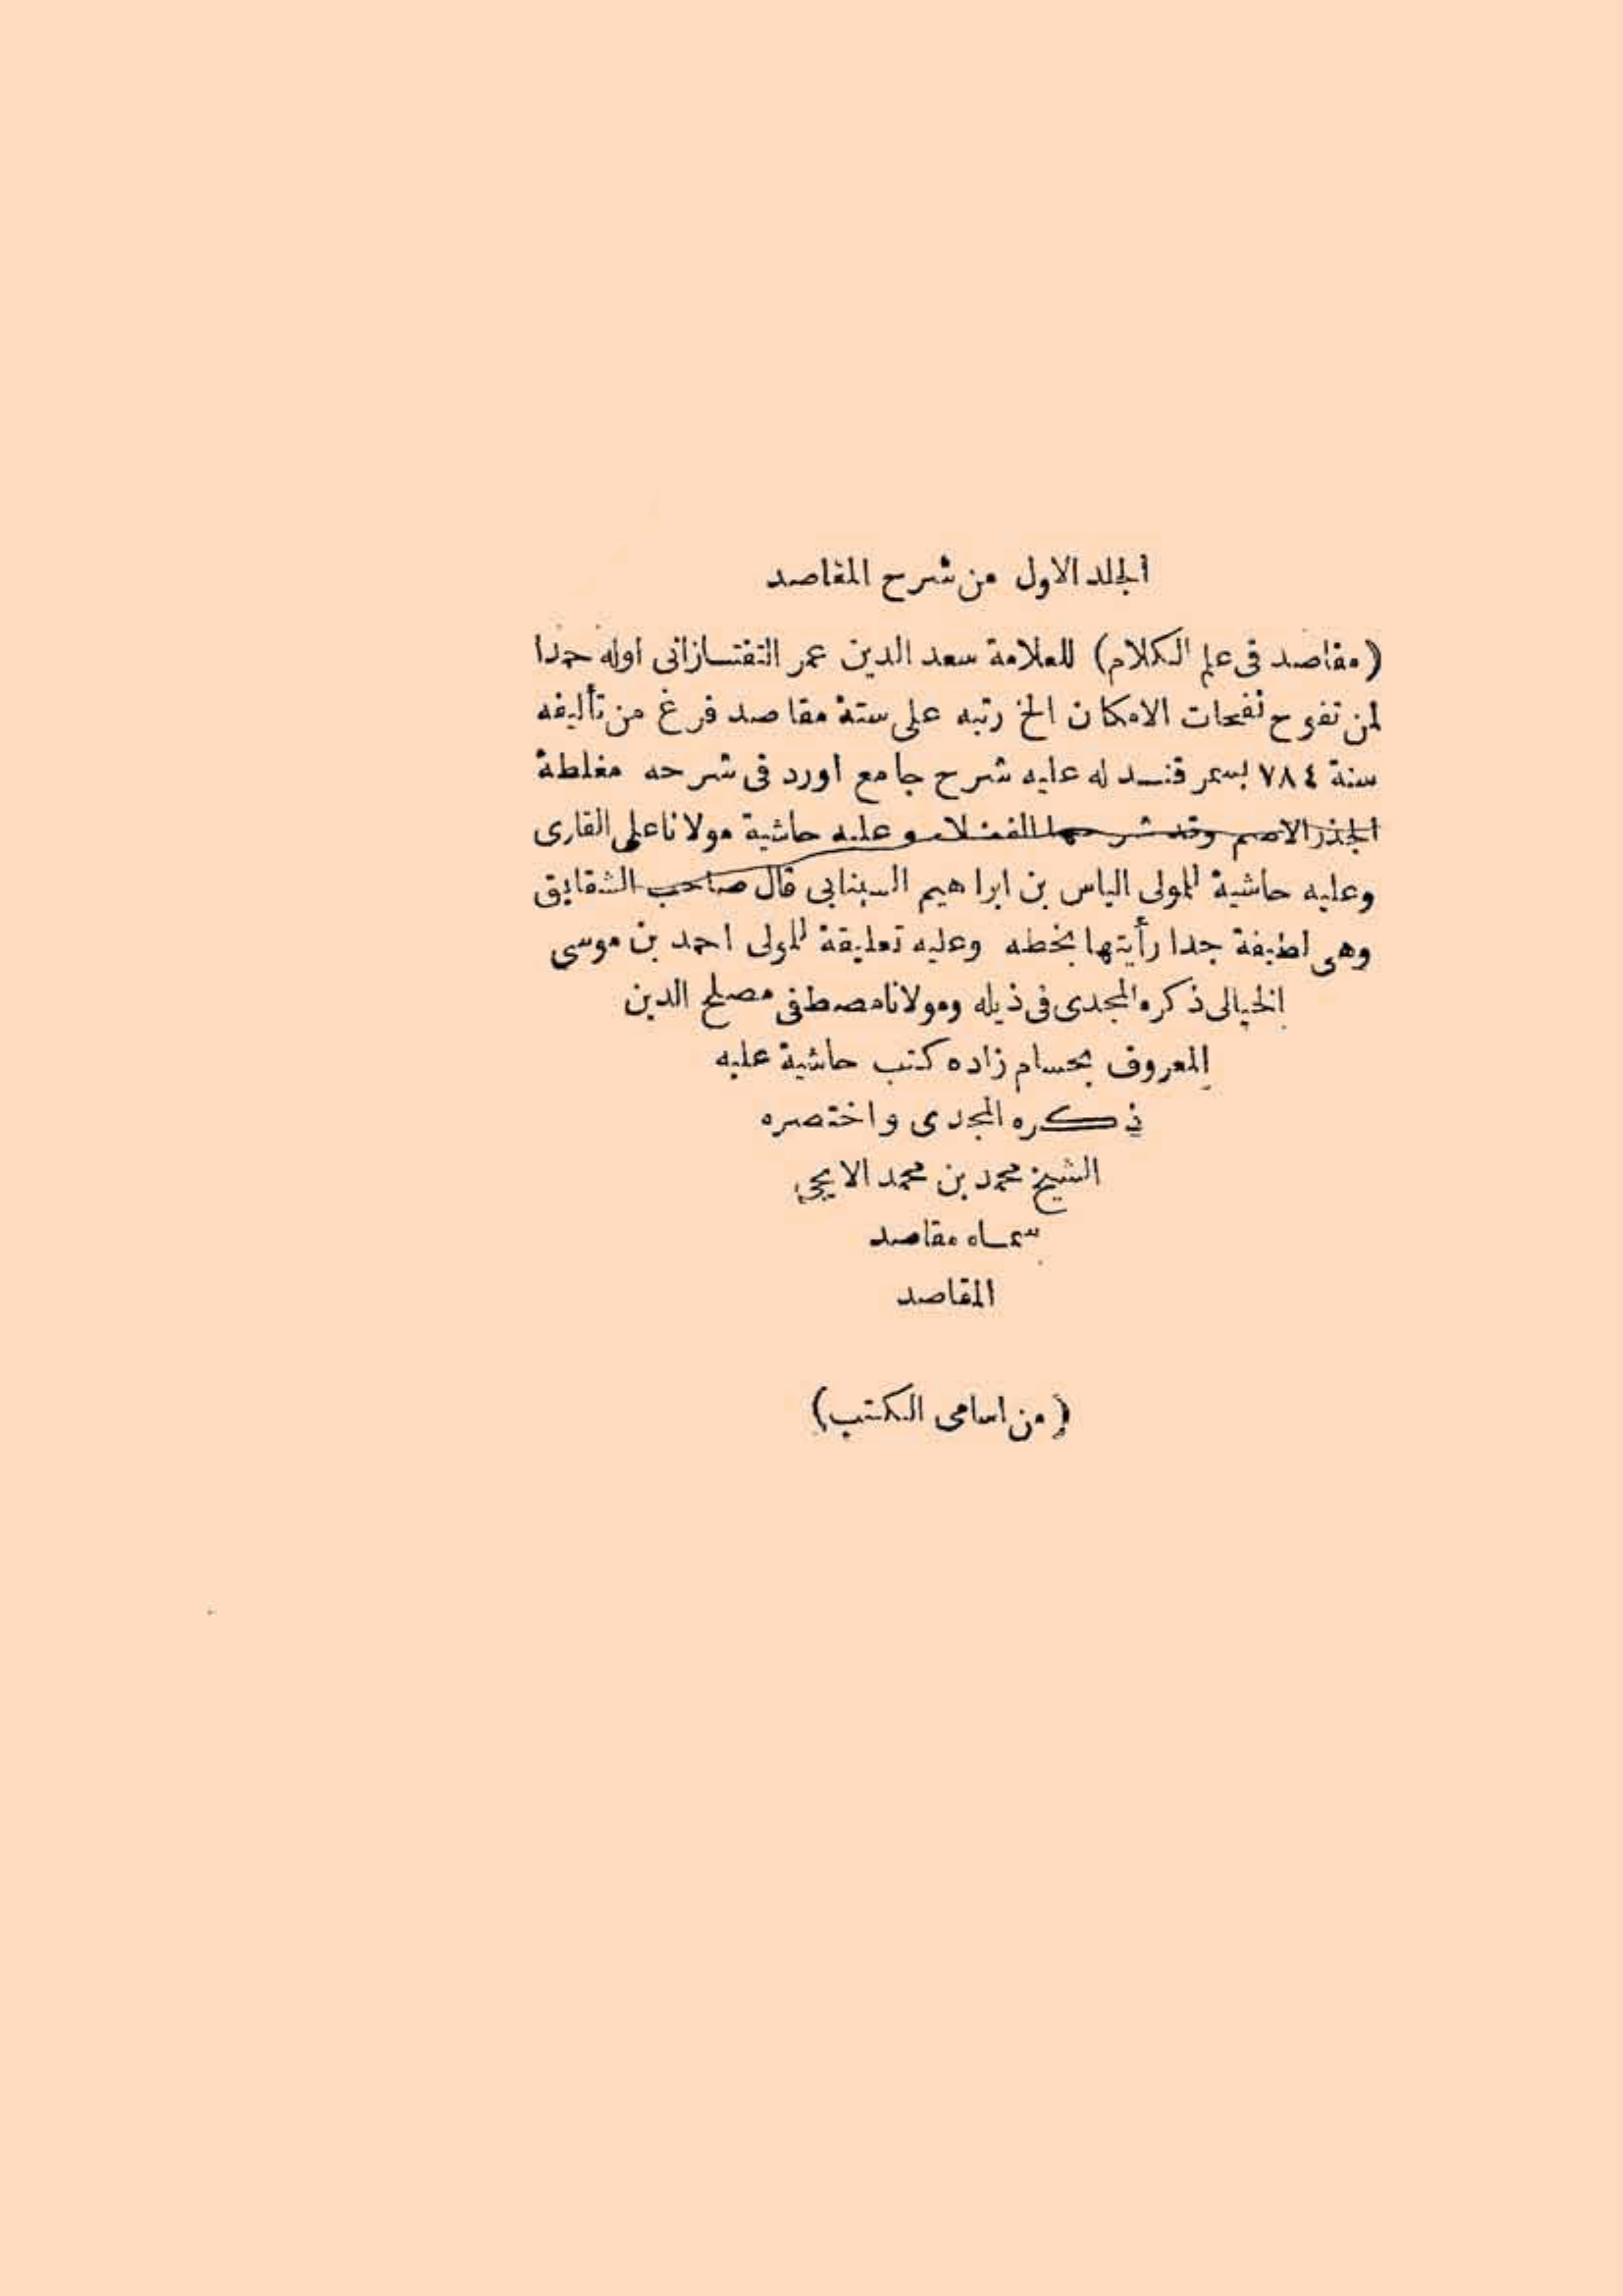 الجلد الاول من شرح المقاصد
(مقاصد فى علم الكلام) للعلامة سعد الدين عمر التفتسازانى اوله حمدا
لمن تفوح نفحات الامكان الخ رتبه على ستة مقاصد فرغ من تأليفه
سنة ٧٨٤ بسمرقنـد له عليه شرح جامع اورد فى شرحه مغلطة
الجذر الاصم وقد شرحها الفضلاء وعليه حاشية مولانا على القارى
وعليه حاشية للمولى الياس بن ابراهيم السينابى قال صاحب الشقايق
وهى لطيفة جدا رأيتها بخطه وعليه تعليقة للمولى احمد بن موسى
الخيالى ذكره المجدى فى ذيله ومولانا مصطفى مصلح الدين
المعروف بحسام زاده كتب حاشية عليه
ذكره المجدى واختصره
الشيخ محمد بن محمد الايجى
سماه مقاصد
المقاصد
(من اسامى الكتب)